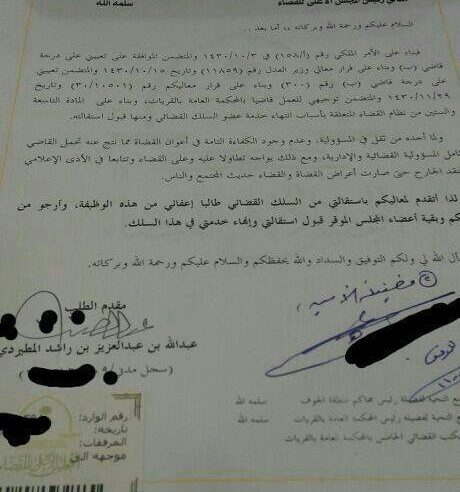 معالي رئيس المجلس الأعلى للقضاء سلمه الله
السلام عليكم ورحمة الله وبركاته .. أما بعد ..
فبناء على الأمر الملكي رقم (أ/١٥٨) في ١٤٣٠/١٠/٣ والمتضمن الموافقة على تعييني على درجة
قاضي (ب) وبناء على قرار معالي وزير العدل رقم (١١٨٥٩) وتاريخ ١٤٣٠/١٠/١٥ والمتضمن تعييني
على درجة قاضي (ب) رقم (٣٠٠) وبناء على قرار معاليكم رقم (٣٠/١٠٥٠١) وتاريخ
١٤٣٠/١١/٢٩ والمتضمن توجيهي للعمل قاضيا بالمحكمة العامة بالقريات، وبناء على المادة التاسعة
والستين من نظام القضاء المتعلقة بأسباب انتهاء خدمة عضو السلك القضائي ومنها قبول استقالته.
ولما أجده من ثقل في المسؤولية، وعدم وجود الكفاءة التامة في أعوان القضاة مما نتج عنه تحمل القاضي
كامل المسؤولية القضائية والإدارية، ومع ذلك يواجه تطاولا عليه وعلى القضاء وتتابعا في الأذى الإعلامي
والنقد الجارح حتى صارت أعراض القضاة والقضاء حديث المجتمع والناس.
لذا أتقدم لمعاليكم باستقالتي من السلك القضائي طالبا إعفائي من هذه الوظيفة، وأرجو من
معاليكم وبقية أعضاء المجلس الموقر قبول استقالتي وإنهاء خدمتي في هذا السلك.
أسأل الله لي ولكم التوفيق والسداد والله يحفظكم والسلام عليكم ورحمة الله وبركاته.
مقدم الطلب
عبدالله بن عبدالعزيز بن راشد المطيردي
(سجل مدني/
فضيلة الأمين
مع التحية لفضيلة رئيس محاكم منطقة الجوف سلمه الله
مع التحية لفضيلة رئيس المحكمة العامة بالقريات سلمه الله
المكتب القضائي الخامس بالمحكمة العامة بالقريات
رقم الوارد:
تاريخه:
المرفقات:
موجهه الى: